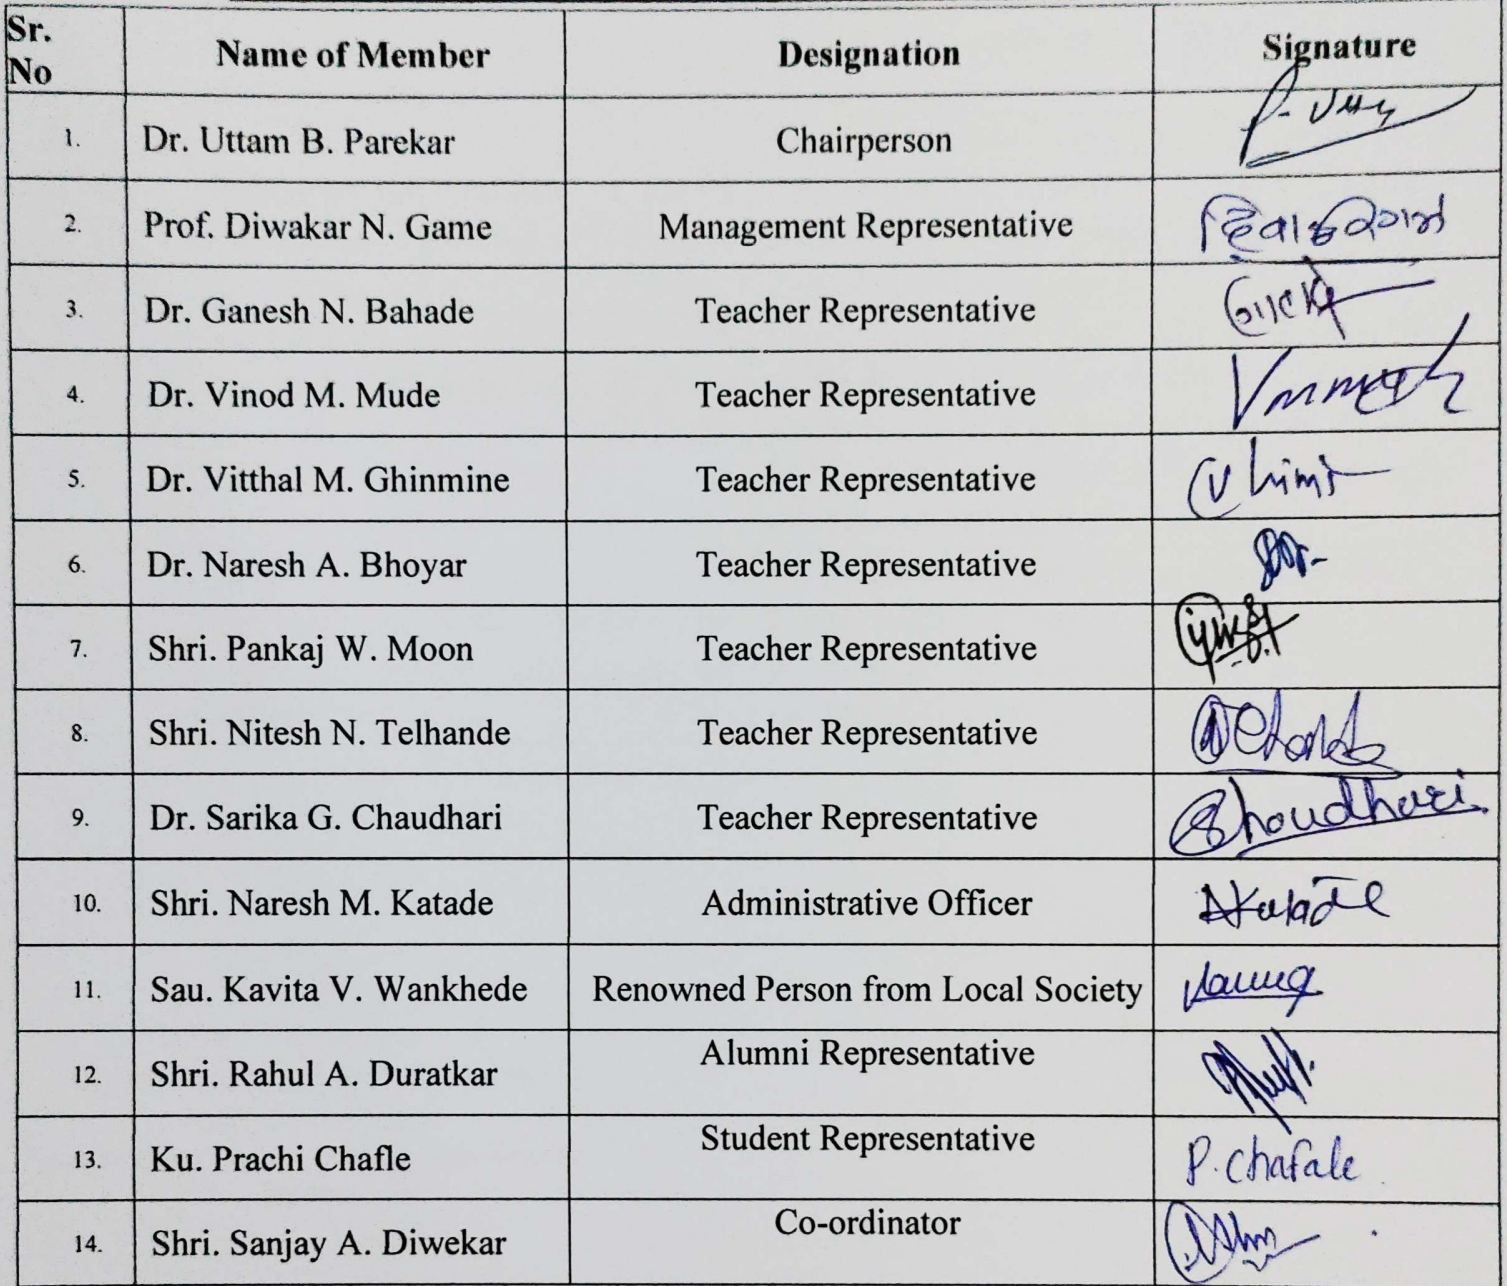 Sr. No Name of Member Designation Signature
1. Dr. Uttam B. Parekar Chairperson
2. Prof. Diwakar N. Game Management Representative
3. Dr. Ganesh N. Bahade Teacher Representative
4. Dr. Vinod M. Mude Teacher Representative
5. Dr. Vitthal M. Ghinmine Teacher Representative
6. Dr. Naresh A. Bhoyar Teacher Representative
7. Shri. Pankaj W. Moon Teacher Representative
8. Shri. Nitesh N. Telhande Teacher Representative
9. Dr. Sarika G. Chaudhari Teacher Representative Choudhari
10. Shri. Naresh M. Katade Administrative Officer
11. Sau. Kavita V. Wankhede Renowned Person from Local Society
12. Shri. Rahul A. Duratkar Alumni Representative
13. Ku. Prachi Chafle Student Representative P. Chafale
14. Shri. Sanjay A. Diwekar Co-ordinator